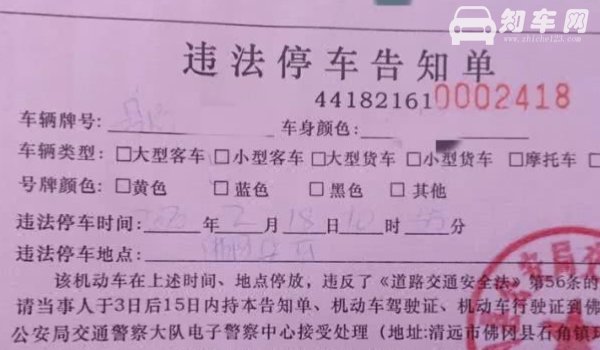 知车网
www.zhiche123.com
违法停车告知单
44182161 0002418
车辆牌号: 车身颜色:
车辆类型: □大型客车 □小型客车 □大型货车 □小型货车 □摩托车
号牌颜色: □黄色 □蓝色 □黑色 □其他
违法停车时间: 年 2 月 18 日 10 时 分
违法停车地点:
该机动车在上述时间、地点停放，违反了《道路交通安全法》第56条的
请当事人于3日后15日内持本告知单、机动车驾驶证、机动车行驶证到佛
公安局交通警察大队电子警察中心接受处理（地址:清远市佛冈县石角镇环